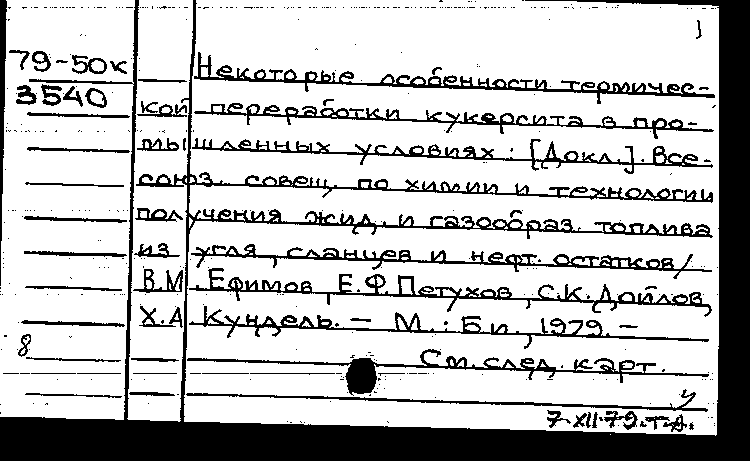 1
79-50к Некоторые особенности термичес-
3540 кой переработки кукерсита в про-
мышленных условиях: [Докл.]. Все-
союз. совещ. по химии и технологии
получения жид. и газообраз. топлива
из угля, сланцев и нефт. остатков/
В.М. Ефимов, Е.Ф. Петухов, С.К. Дойлов,
Х.А Кундель. — М.: Б.и., 1979. —
8 См. след. карт.
У
7.XII.79. Т.А.